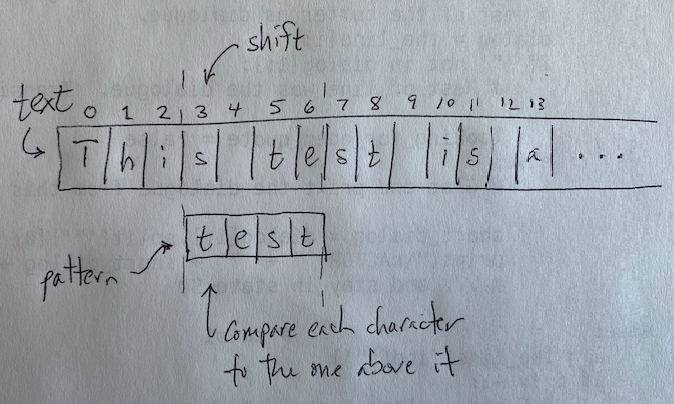 shift
text 0 1 2 3 4 5 6 7 8 9 10 11 12 13
T h i s t e s t i s a ...
t e s t
pattern
compare each character
to the one above it